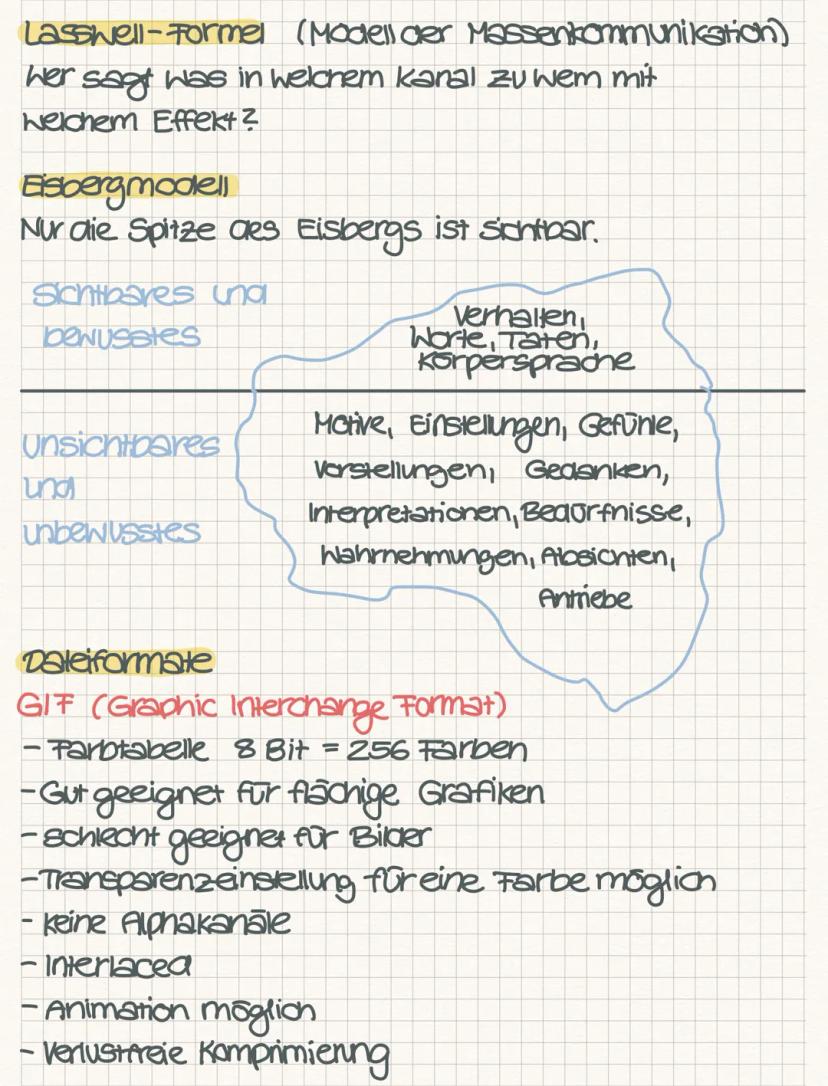 Lasswell-Formel (Modell der Massenkommunikation)
Wer sagt was in welchem Kanal zu wem mit
welchem Effekt?
Eisbergmodell
Nur die Spitze des Eisbergs ist sichtbar.
Sichtbares und
bewusstes
Verhalten,
Worte, Taten,
Körpersprache
Unsichtbares
und
unbewusstes
Motive, Einstellungen, Gefühle,
Vorstellungen, Gedanken,
Interpretationen, Bedürfnisse,
Wahrnehmungen, Absichten,
Antriebe
Dateiformate
GIF (Graphic Interchange Format)
- Farbtabelle 8 Bit = 256 Farben
- Gut geeignet für flächige Grafiken
- schlecht geeignet für Bilder
- Transparenzeinstellung für eine Farbe möglich
- keine Alphakanäle
- Interlaced
- Animation möglich
- Verlustfreie Komprimierung